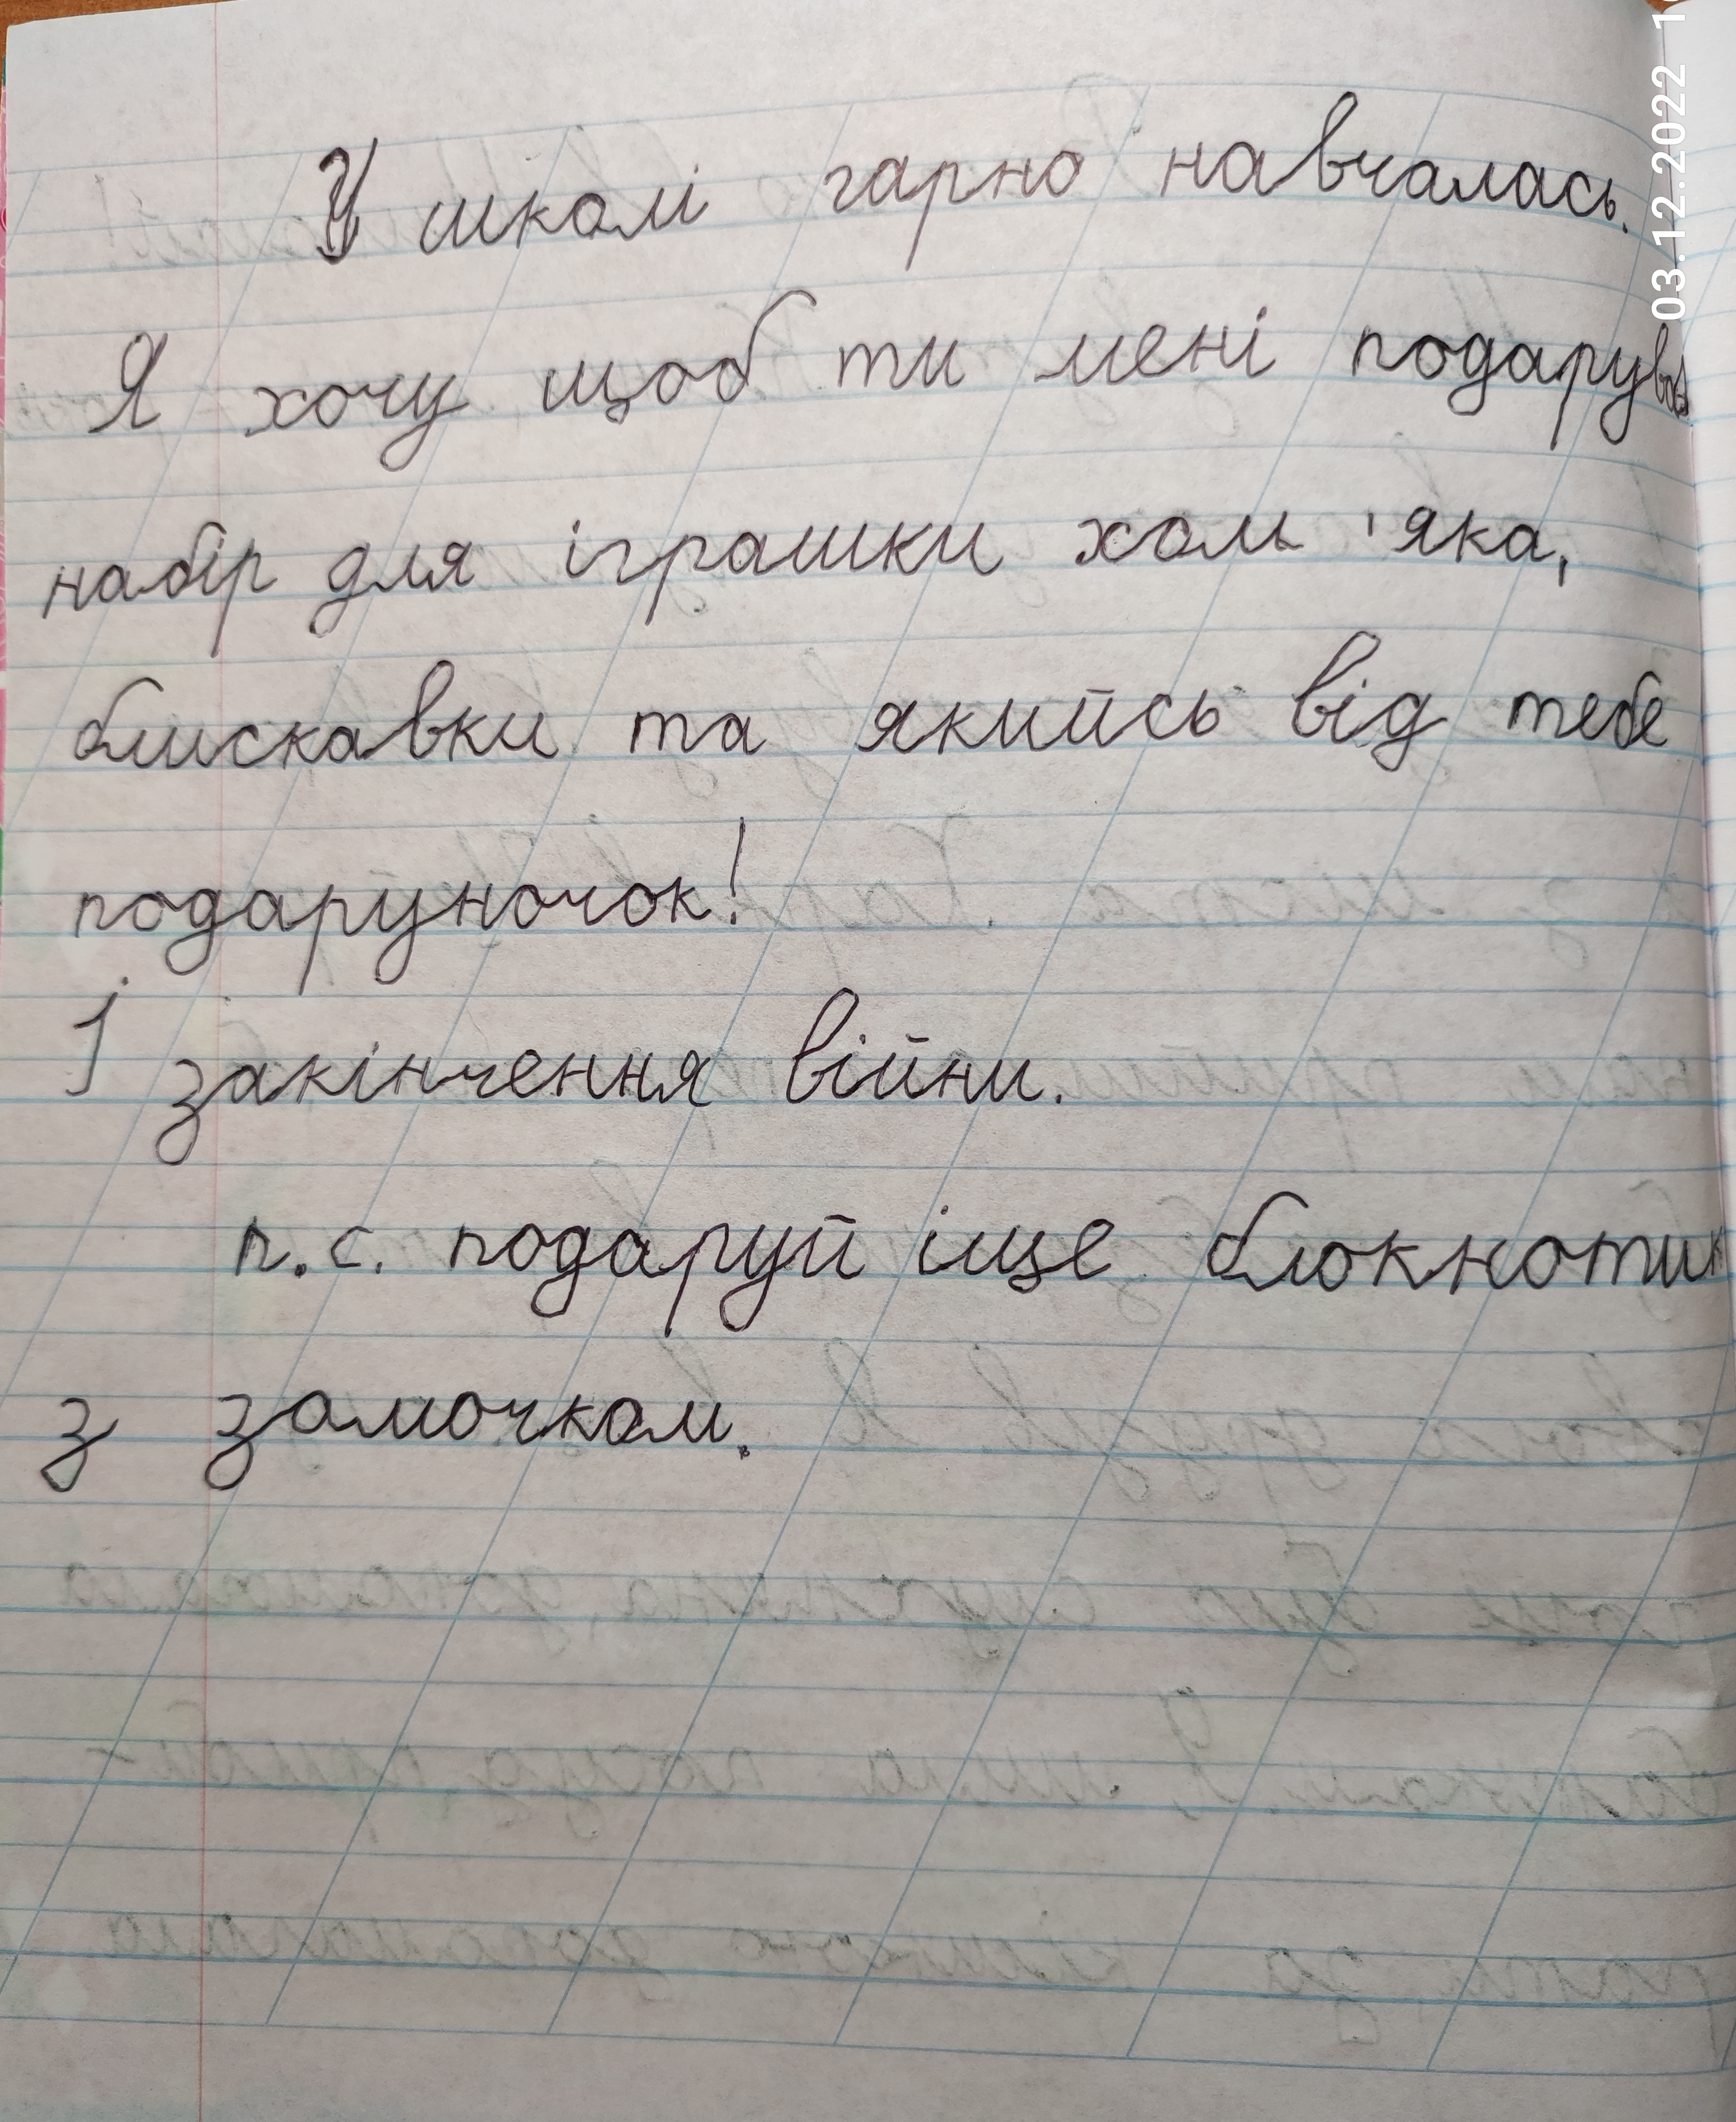 У школі гарно навчалась.
Я хочу щоб ти мені подарував
набір для іграшки хом'яка,
блискавки та якийсь від тебе
подаруночок!
І закінчення війни.
п.с. подаруй іще блокнотик
з замочком.
03.12.2022